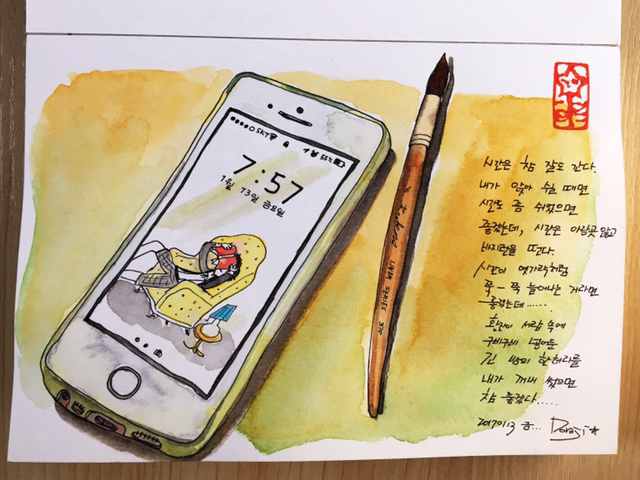 SKT 55%
7:57
1월 13일 금요일
LINER SERIES
시간은 참 잘도 간다.
내가 앉아 쉴 때면
시간도 좀 쉬었으면
좋겠는데, 시간은 아랑곳 않고
바지런을 떤다.
시간이 엿가락처럼
쭉- 쭉 늘어나는 거라면
좋겠는데......
황진이 서랍 속에
구비구비 넣어둔
긴 밤의 한허리를
내가 꺼내 썼으면
참 좋겠다.....
20170113 금... Doraji